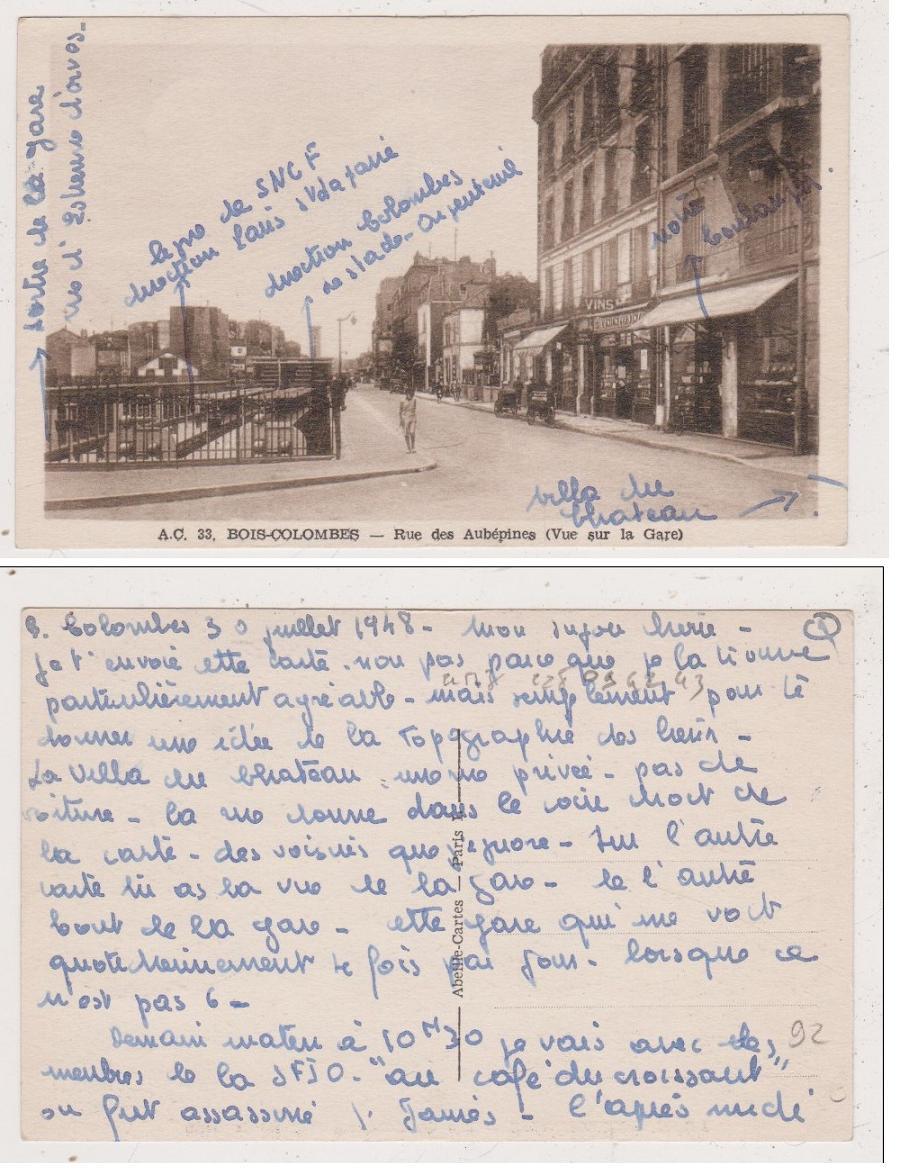 sortie de la gare
rue d'Estienne d'orves.
ligne de SNCF
direction Paris St Lazare
direction Colombes
le stade - argenteuil
notre
boulanger.
VINS
villa du
chateau
A.C. 33. BOIS-COLOMBES — Rue des Aubépines (Vue sur la Gare)
B. Colombes 30 juillet 1948 - mon cherie - 1
je t'envoie cette carte. non pas parce que je la trouve
particulièrement agréable - mais simplement pour te
donner une idée de la topographie des lieux -
La villa du chateau : une rue privée - pas de
voiture - la rue donne dans le coin droit de
la carte - des voisins que j'ignore - sur l'autre
carte tu as la vue de la gare - de l'autre
bout de la gare - cette gare qui me voit
quotidiennement 4 fois par jour - lorsque ce
n'est pas 6 -
Demain matin à 10H30 je vais avec des 92
membres de la SFIO - "au café du croissant"
ou fut assassiné J. Jaurès - l'après midi
Abeille-Cartes — Paris